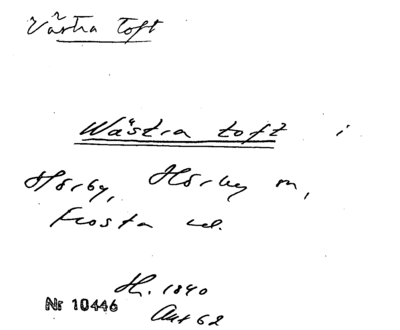 Västra Toft
Wästra toft i
Hörby, Hörby m,
Frosta hd.
H. 1840
Nr 10446
Akt 62